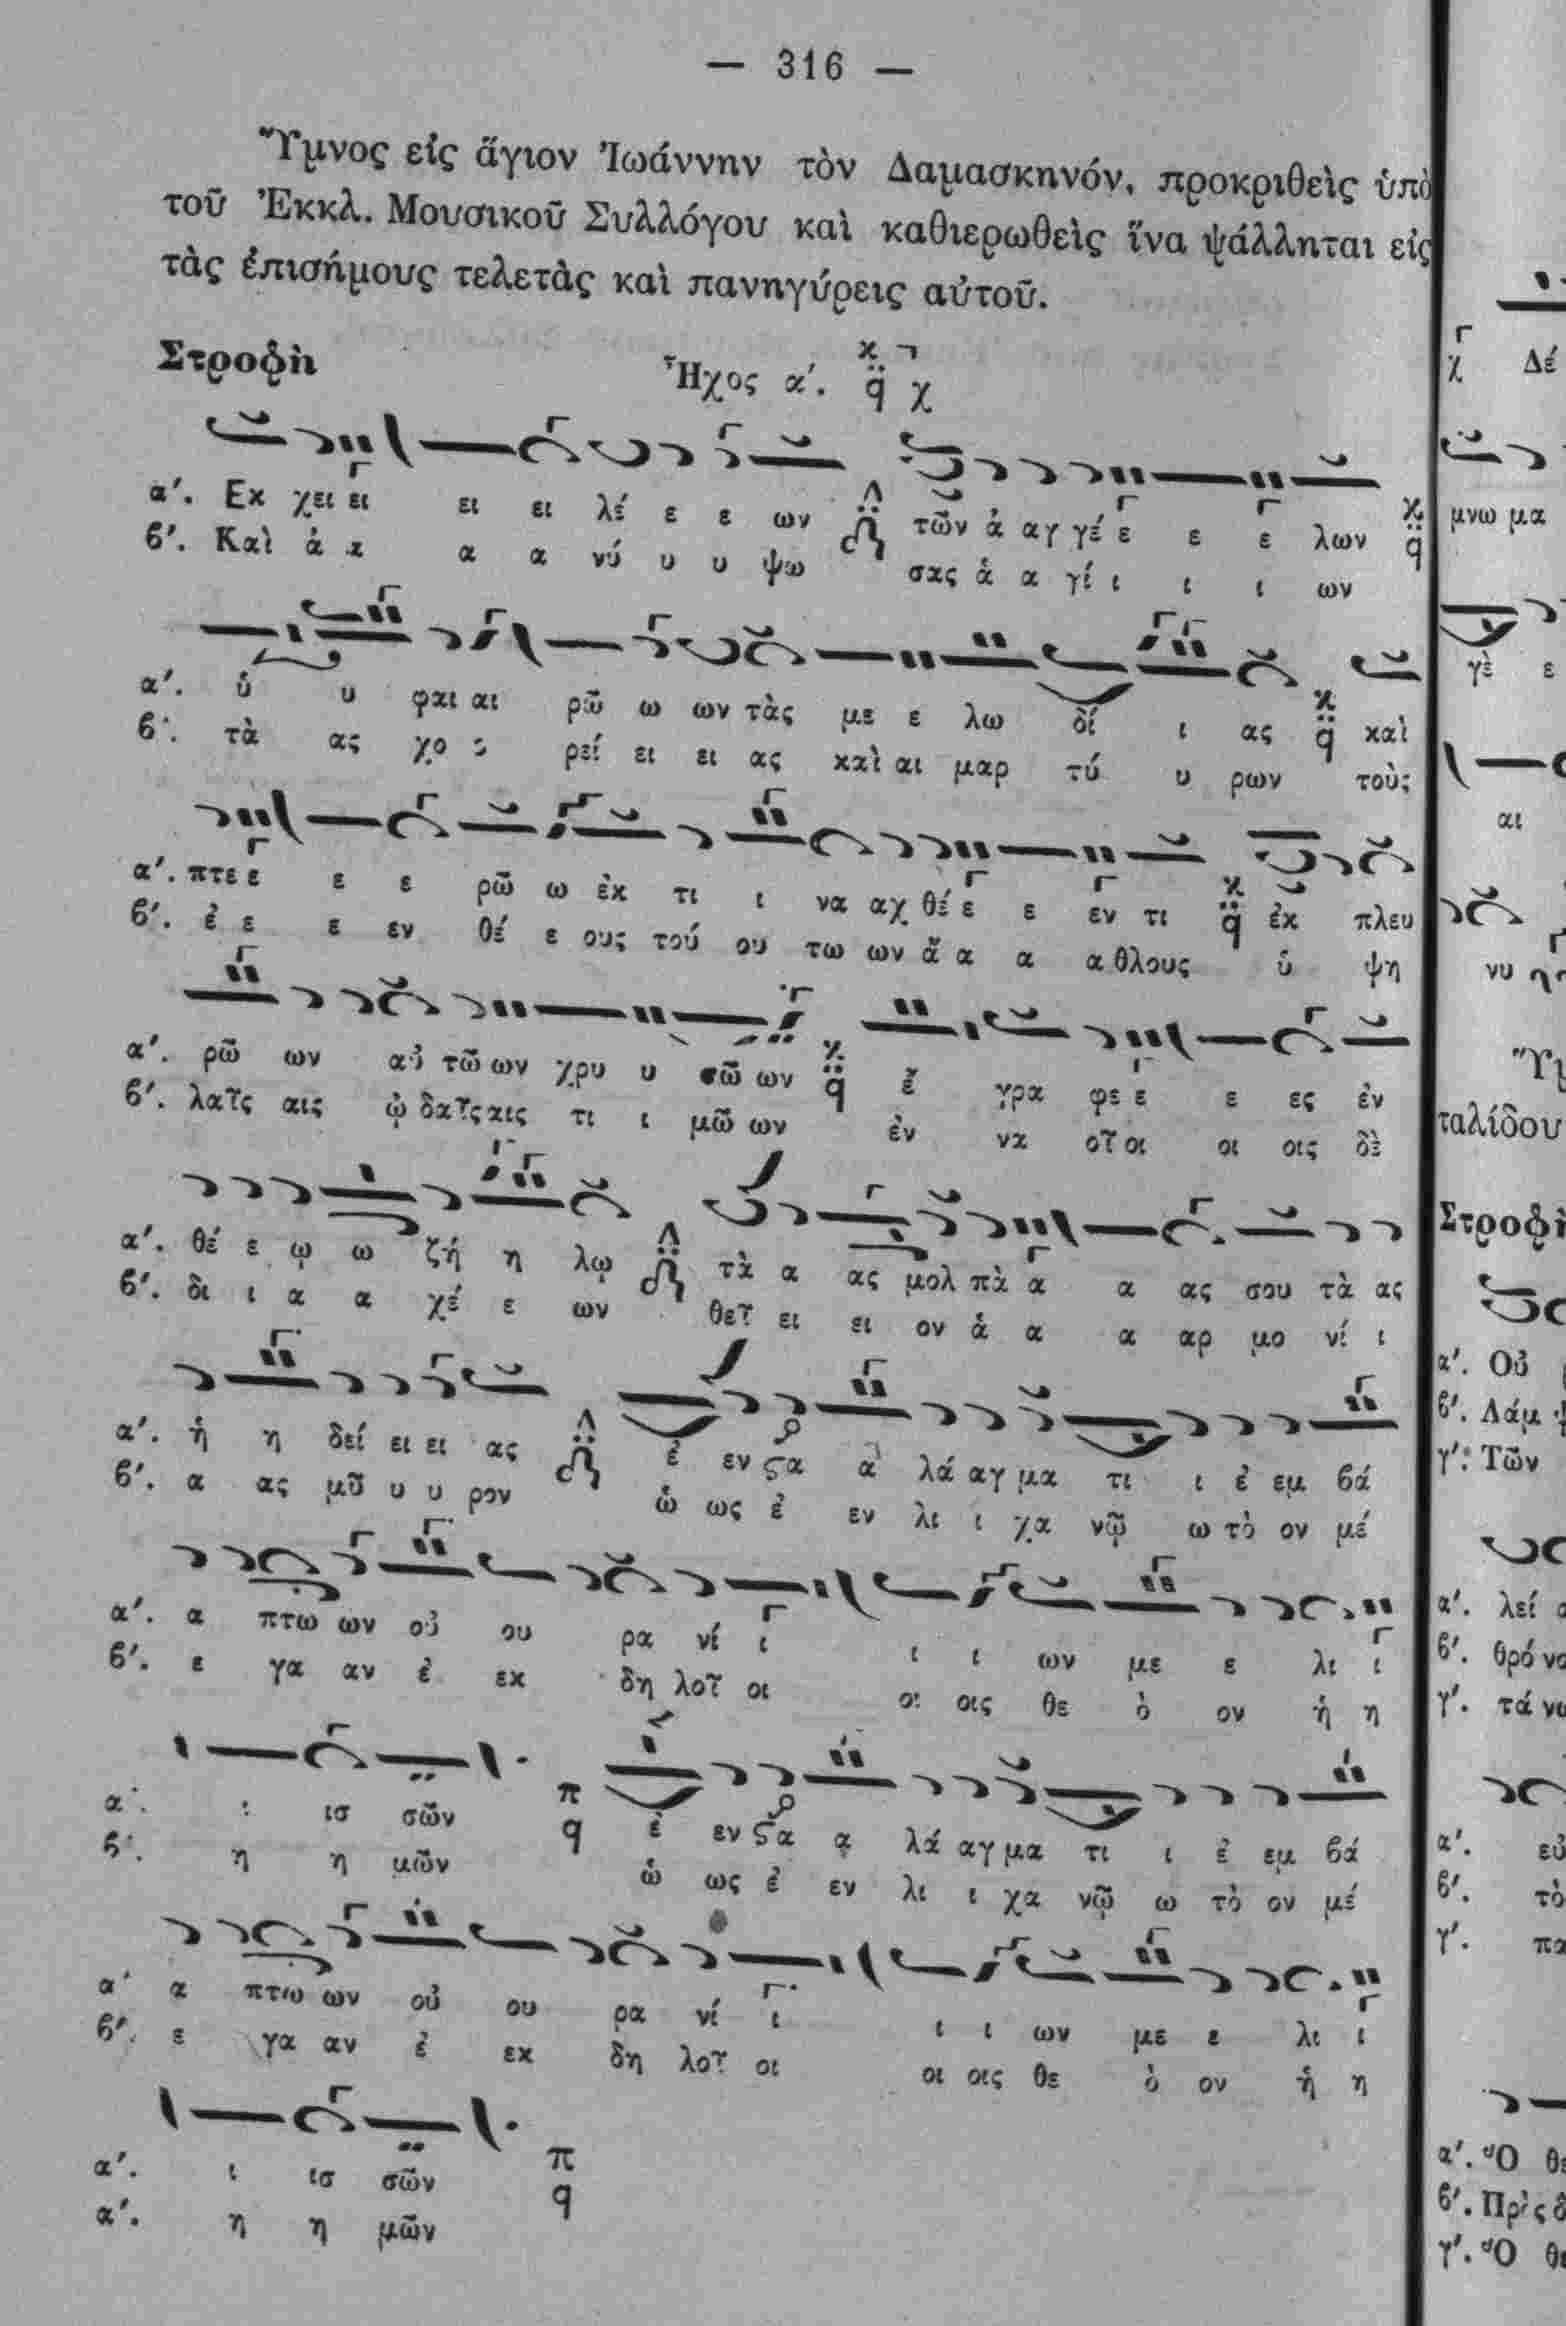 — 316 —
Ὕμνος εἰς ἅγιον Ἰωάννην τὸν Δαμασκηνόν, προκριθεὶς ὑπὸ
τοῦ Ἐκκλ. Μουσικοῦ Συλλόγου καὶ καθιερωθεὶς ἵνα ψάλληται εἰς
τὰς ἐπισήμους τελετὰς καὶ πανηγύρεις αὐτοῦ.
Στροφὴ Ἦχος α′.
α′. Εκ χει ει ει ει λέ ε ε ων τῶν ἀ αγ γέ ε ε ε λων
β′. Καὶ ἀ α α α νύ υ υ ψω σας ἁ α γί ι ι ι ων
α′. ὑ υ φαι αι ρῶ ω ων τὰς με ε λω δί ι ας καὶ
β′. τὰ ας χο ο ρεί ει ει ας καὶ αι μαρ τύ υ ρων τοὺς
α′. πτε ε ε ε ρῶ ω ἐκ τι ι να αχ θέ ε ε εν τι ἐκ πλευ
β′. ἐ ε ε εν θέ ε ους τού ου τω ων ἄ α α α θλους ὑ ψη
α′. ρῶ ων αὐ τῶ ων χρυ υ σῶ ων ἔ γρα φε ε ε ες ἐν
β′. λαῖς αις ᾠ δαῖς αις τι ι μῶ ων ἐν να οῖ οι οι οις δὲ
α′. θέ ε ῳ ω ζή η λῳ τὰ α ας μολ πὰ α α ας σου τὰ ας
β′. δι ι α α χέ ε ων θεῖ ει ει ον ἁ α α αρ μο νί ι
α′. ἡ η δεί ει ει ας ἐ εν ϛα α λά αγ μα τι ι ἐ εμ βά
β′. α ας μῦ υ υ ρον ὡ ως ἐ εν λι ι χα νῷ ω τὸ ον μέ
α′. α πτω ων οὐ ου ρα νί ι ι ι ων με ε λι ι
β′. ε γα αν ἐ εκ δη λοῖ οι οι οις θε ὸ ον ἡ η
α′. ι ισ σῶν ἐ εν ϛα α λά αγ μα τι ι ἐ εμ βά
β′. η η μῶν ὡ ως ἐ εν λι ι χα νῷ ω τὸ ον μέ
α′ α πτω ων οὐ ου ρα νί ι ι ι ων με ε λι ι
β′. ε γα αν ἐ εκ δη λοῖ οι οι οις θε ὸ ον ἡ η
α′. ι ισ σῶν
α′. η η μῶν
Δέ
μνω μα
γὲ ε
αι
νυ
ταλίδου
Στροφὴ
α′. Οὐ
β′. Λάμ
γ′. Τῶν
α′. λεί
β′. θρό
γ′. τά
α′. εὐ
β′. τὸ
γ′. πα
α′. Ὁ
β′.
γ′. Ὁ